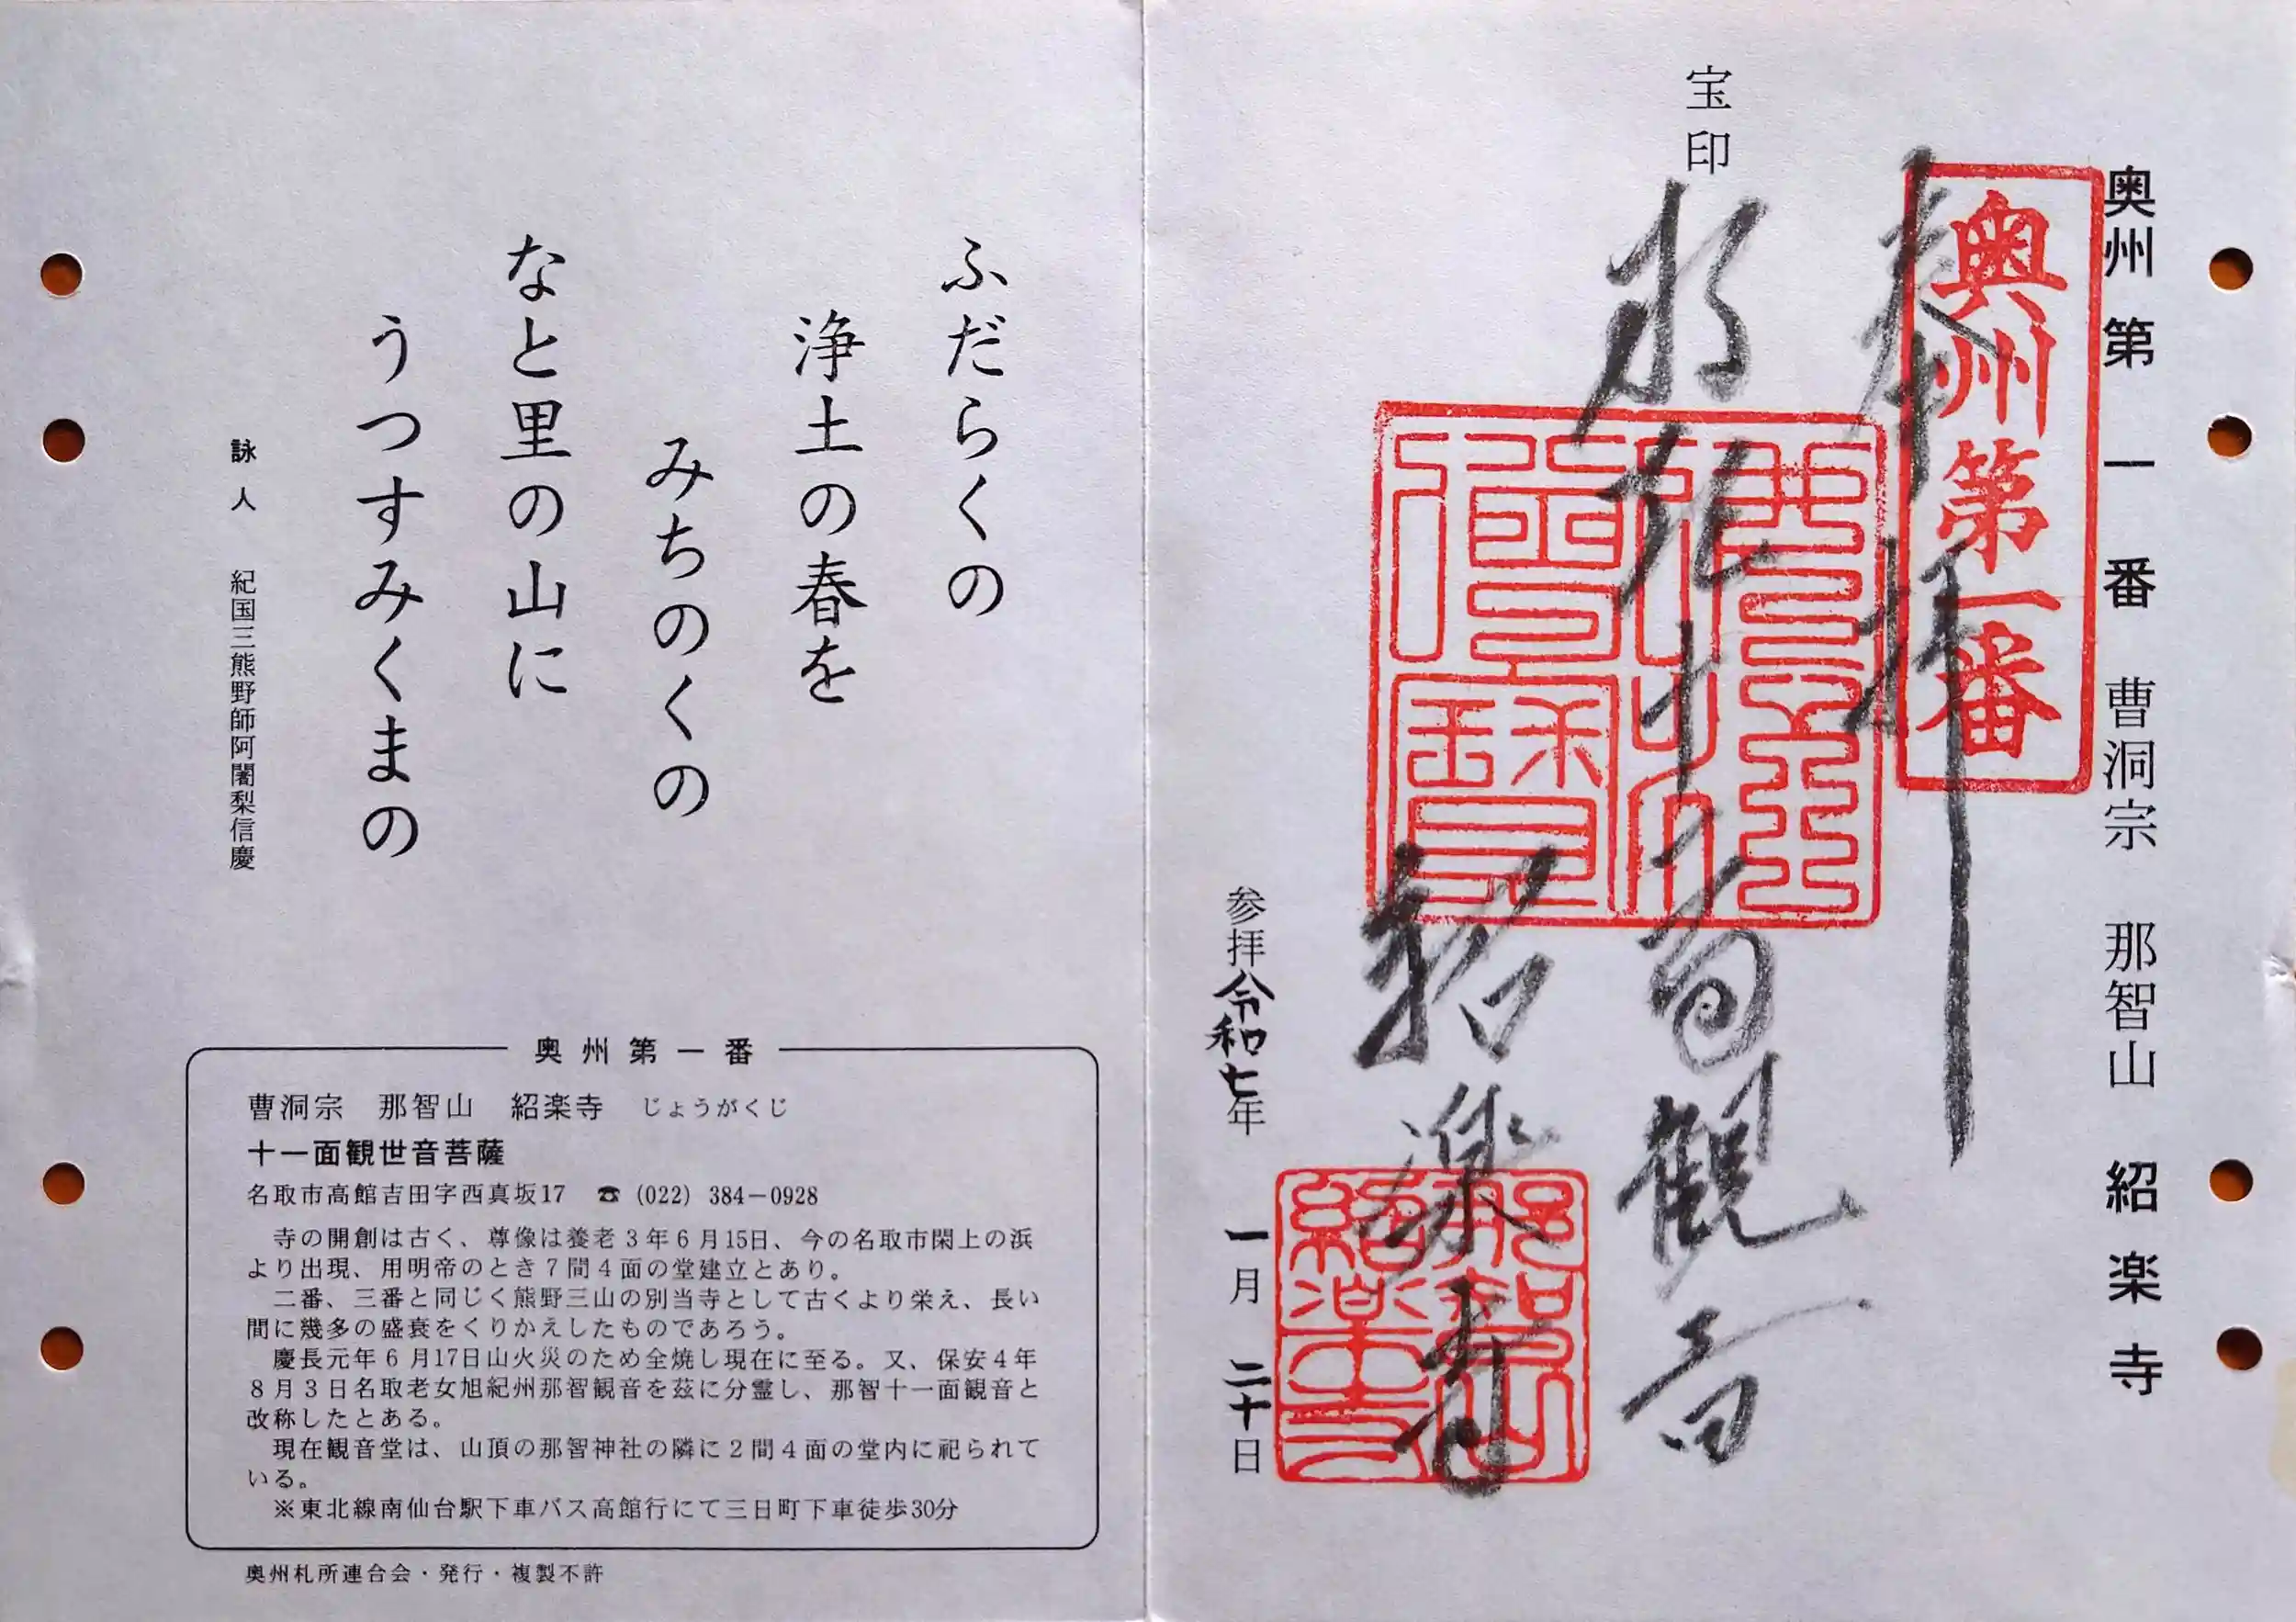 奥州第一番 曹洞宗 那智山 紹楽寺
奥州第一番
奉拝
宝印
十一面観音
紹楽寺
那智山
紹楽寺
参拝令和七年 一月 二十日
ふだらくの
浄土の春を
みちのくの
なと里の山に
うつすみくまの
詠人 紀国三熊野師阿闍梨信慶
奥州第一番
曹洞宗 那智山 紹楽寺 じょうがくじ
十一面観世音菩薩
名取市高館吉田字西真坂17 ☎(022)384-0928
寺の開創は古く、尊像は養老3年6月15日、今の名取市閖上の浜
より出現、用明帝のとき7間4面の堂建立とあり。
二番、三番と同じく熊野三山の別当寺として古くより栄え、長い
間に幾多の盛衰をくりかえしたものであろう。
慶長元年6月17日山火災のため全焼し現在に至る。又、保安4年
8月3日名取老女旭紀州那智観音を茲に分霊し、那智十一面観音と
改称したとある。
現在観音堂は、山頂の那智神社の隣に2間4面の堂内に祀られて
いる。
※東北線南仙台駅下車バス高館行にて三日町下車徒歩30分
奥州札所連合会・発行・複製不許